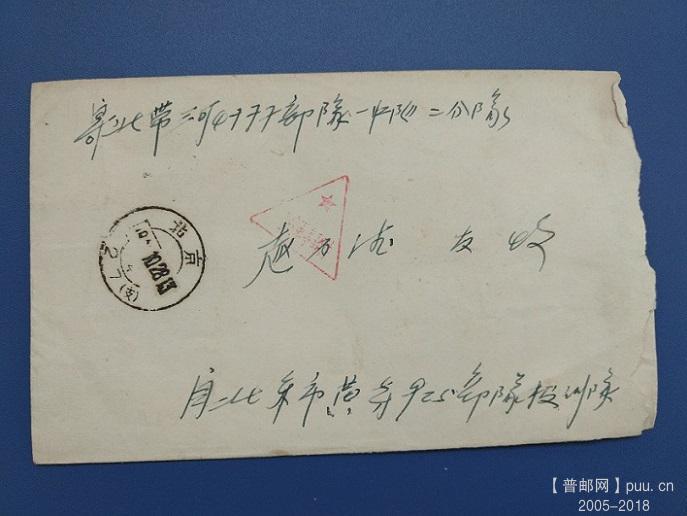 寄北带河4777部队一中队二分队
赵万法 友收
北京
10.28.13
27
(支)
自北京市黄寺925部队技训队
【普邮网】puu.cn
2005-2018